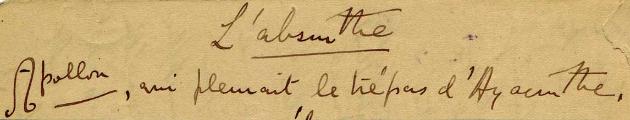 L'absinthe
Apollon, qui pleurait le trépas d'Hyacinthe,